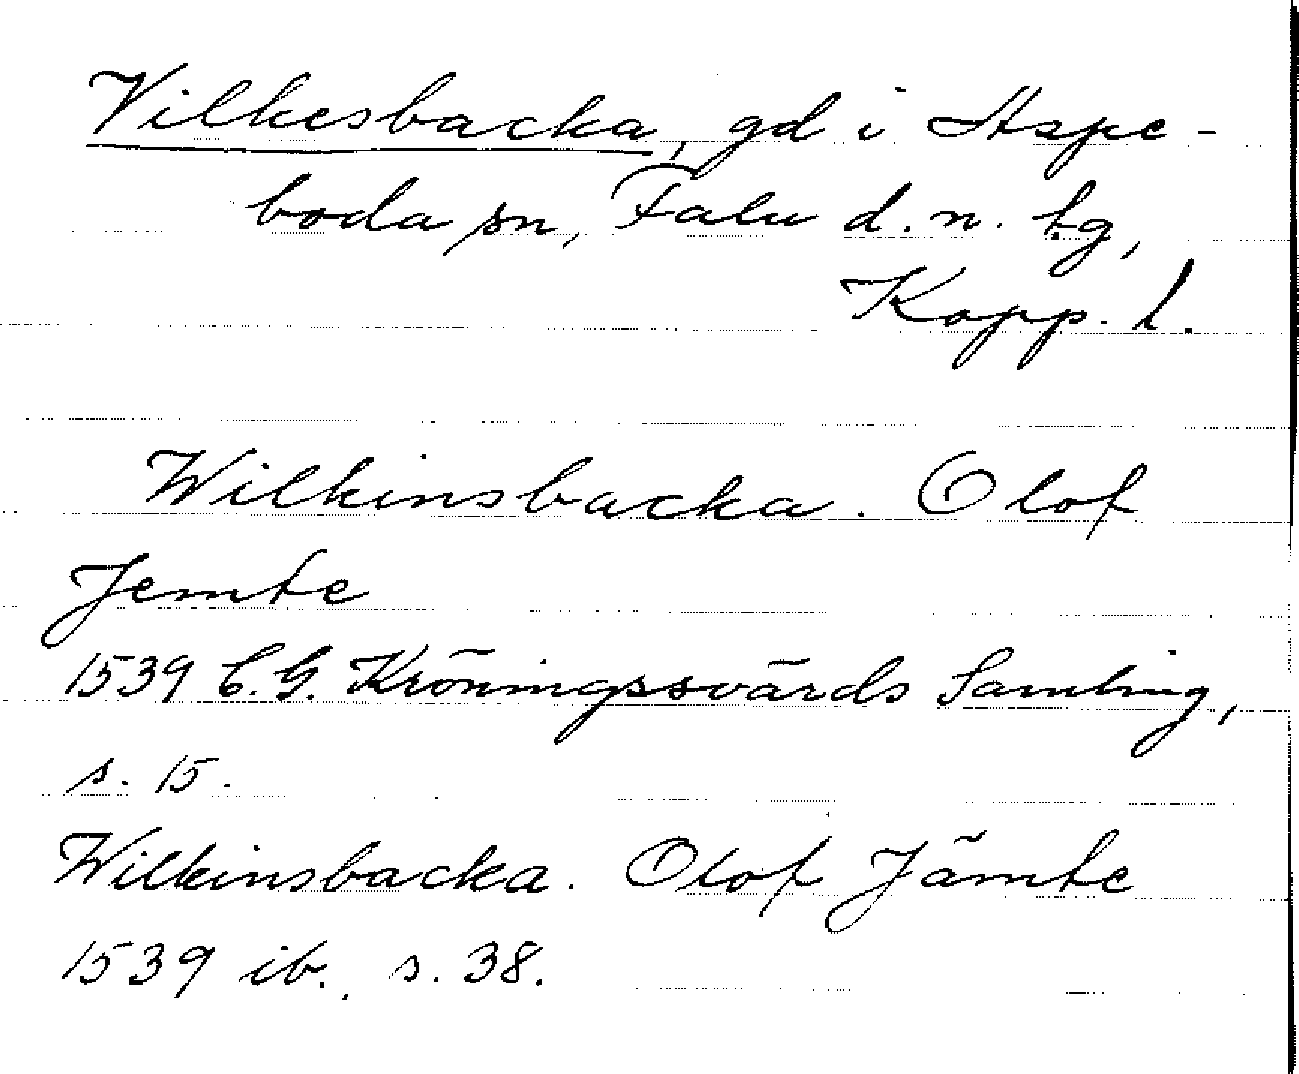 Vilkesbacka, gd i Aspe-
boda sn, Falu d. n. tg,
Kopp. l.
Wilkinsbacka. Olof
Jemte
1539 C.G. Kröningssvärds Samling,
s. 15.
Wilkinsbacka. Olof Jämte
1539 ib., s. 38.